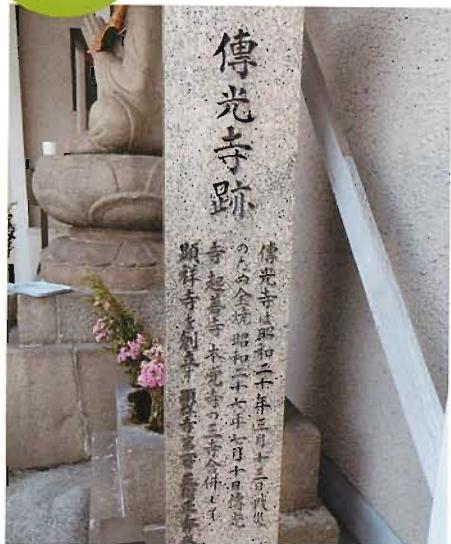 傳光寺跡
傳光寺は昭和二十年三月十三日戦災
のため全焼 昭和二十六年七月十日傳光
寺 起善寺 本覚寺の三寺合併して
顕祥寺を創立